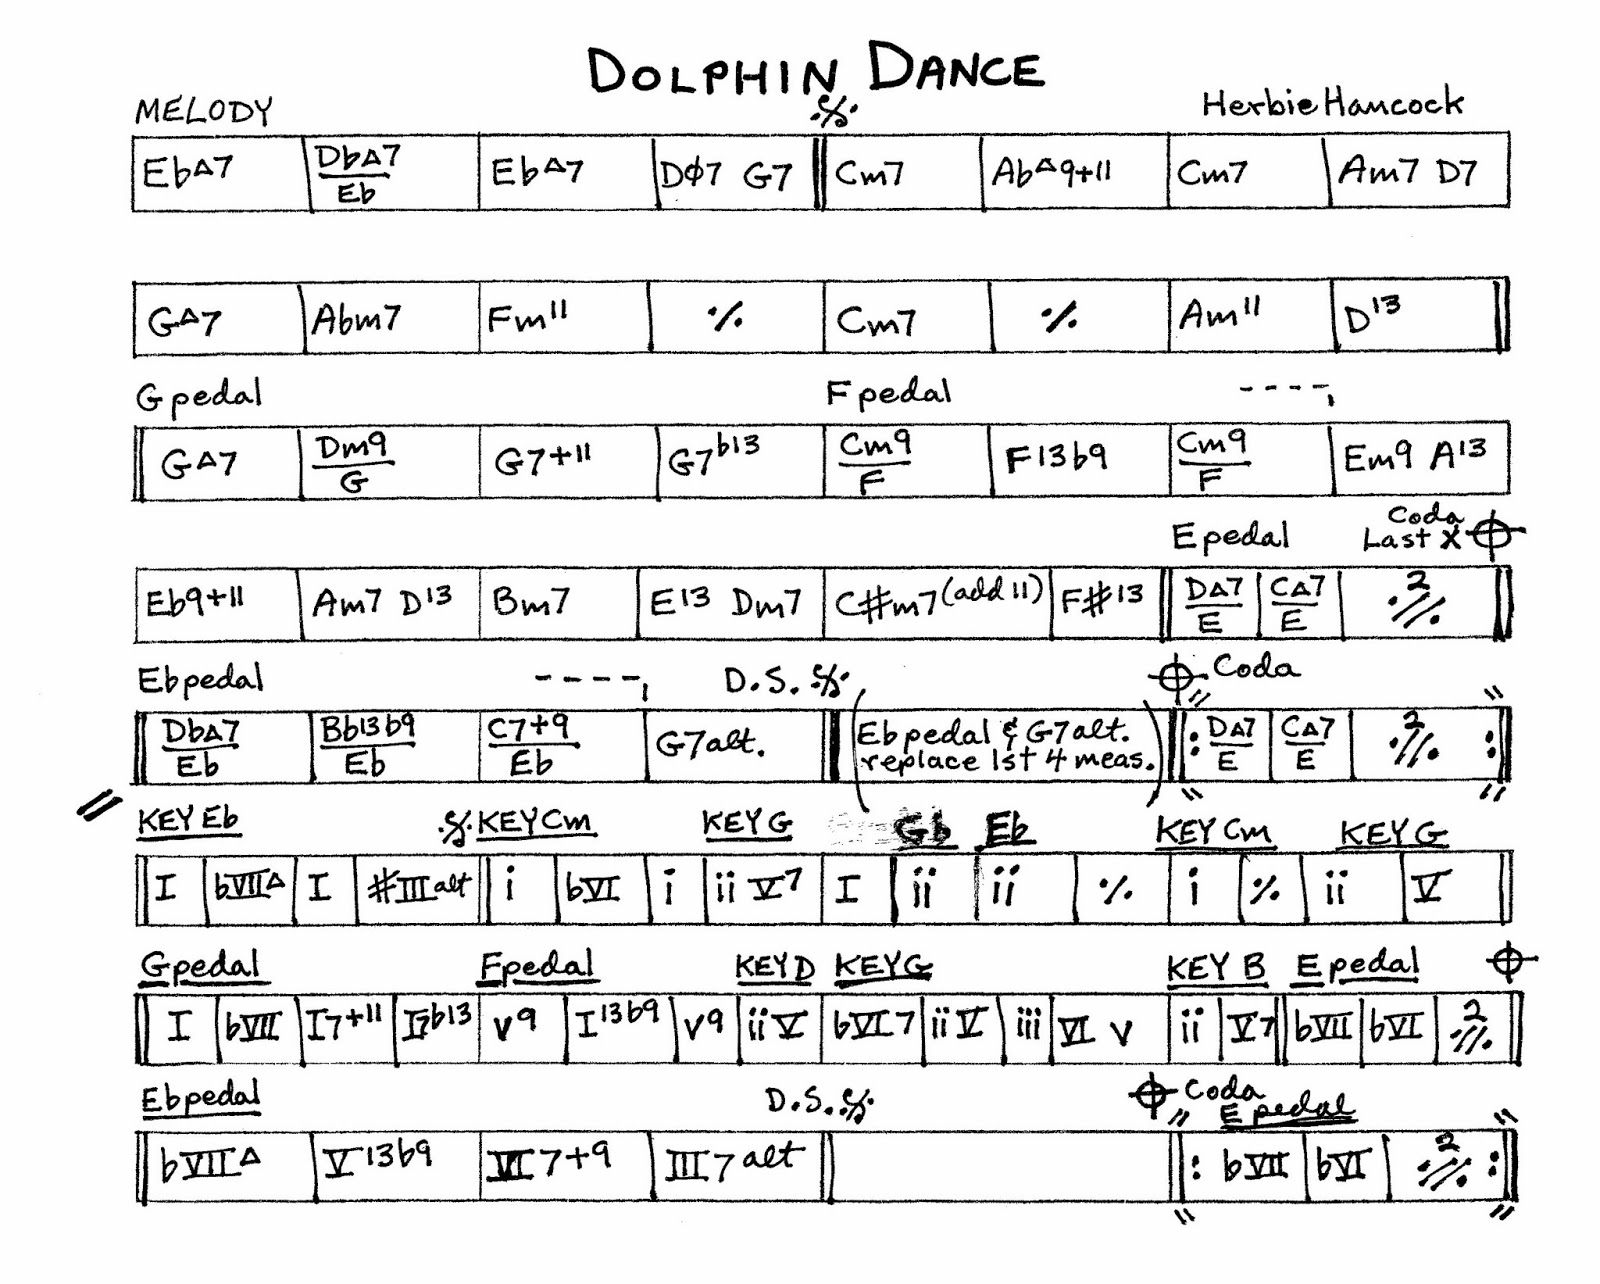 DOLPHIN DANCE
MELODY Herbie Hancock
Eb△7 | Db△7/Eb | Eb△7 | Dø7 G7 || Cm7 | Ab△9+11 | Cm7 | Am7 D7
G△7 | Abm7 | Fm11 | ٪ | Cm7 | ٪ | Am11 | D13
G pedal F pedal ----,
G△7 | Dm9/G | G7+11 | G7b13 | Cm9/F | F13b9 | Cm9/F | Em9 A13
E pedal Coda Last X
Eb9+11 | Am7 D13 | Bm7 | E13 Dm7 | C#m7(add 11) | F#13 || D△7/E | C△7/E | 2
Eb pedal ----, D.S. Coda
Db△7/Eb | Bb13b9/Eb | C7+9/Eb | G7alt. || (Eb pedal & G7alt. replace 1st 4 meas.) ||: D△7/E | C△7/E | 2 :||
KEY Eb KEY Cm KEY G Gb Eb KEY Cm KEY G
I | bVII△ | I | #III alt || i | bVI | i | ii V7 | I | ii | ii | ٪ | i | ٪ | ii | V
G pedal F pedal KEY D KEY G KEY B E pedal
I | bVII | I7+11 | I7b13 | v9 | I13b9 | v9 | ii V | bVI7 | ii V | iii | VI v | ii | V7 || bVII | bVI | 2
Eb pedal D.S. Coda
E pedal
bVII△ | V13b9 | VI7+9 | III7alt || ||: bVII | bVI | 2 :||